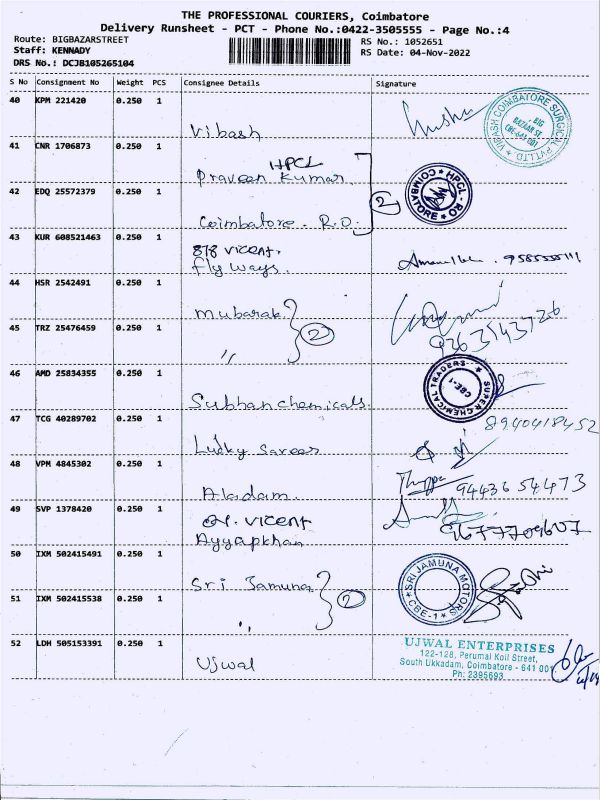 THE PROFESSIONAL COURIERS, Coimbatore
Delivery Runsheet - PCT - Phone No.:0422-3505555 - Page No.:4
Route: BIGBAZARSTREET
RS No.: 1052651
Staff: KENNADY
RS Date: 04-Nov-2022
DRS No.: DCJB105265104
S No Consignment No Weight PCS Consignee Details Signature
40 KPM 221420 0.250 1
Vibash
VIBASH COIMBATORE SURGICAL PVT LTD
BIG
BAZAAR ST.
CBE-641 001
41 CNR 1706873 0.250 1
HPCL
Praveen Kumar
2
HPCL - RO
COIMBATORE
42 EDQ 25572379 0.250 1
Coimbatore. R.O.
43 KUR 608521463 0.250 1
878 vicent.
fly ways.
44 HSR 2542491 0.250 1
Mubarak
2
9363543726
45 TRZ 25476459 0.250 1
"
46 AMD 25834355 0.250 1
Subhan chemicals.
SUPER CHEMICAL TRADERS
CBE-1
47 TCG 40289702 0.250 1
8940418452
Lucky Sarees
48 VPM 4845302 0.250 1
Aladam.
94436 54473
49 SVP 1378420 0.250 1
vicent
Ayyapkhan
9677709607
50 IXM 502415491 0.250 1
Sri Jamuna
2
SRI JAMUNA MOTORS
CBE-1
51 IXM 502415538 0.250 1
"
52 LDH 505153391 0.250 1
Ujwal
UJWAL ENTERPRISES
122-128, Perumal Koil Street,
South Ukkadam, Coimbatore - 641 001
Ph: 2395693